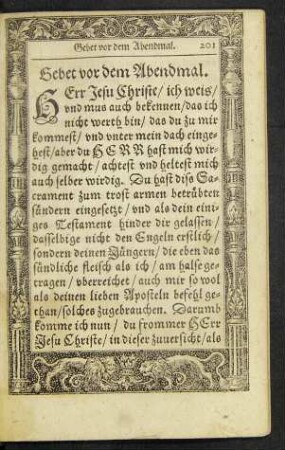 Gebet vor dem Abendmal. 201
Gebet vor dem Abendmal.
HErr Jesu Christe/ ich weis/
vnd mus auch bekennen/das ich
nicht werth bin/ das du zu mir
kommest/ vnd vnter mein dach einge-
hest/aber du HERR hast mich wir-
dig gemacht/ achtest vnd heltest mich
auch selber wirdig. Du hast diß Sa-
crament zum trost armen betrübten
sündern eingesetzt/ vnd als dein eini-
ges Testament hinder dir gelassen/
dasselbige nicht den Engeln erstlich/
sondern deinen Jüngern/ die eben das
sündliche fleisch als ich/ am halse ge-
tragen/ vberreichet/ auch mir so wol
als deinen lieben Aposteln befehl ge-
than/solches zugebrauchen. Darumb
komme ich nun/ du frommer HErr
Jesu Christe/ in dieser zuuersicht/als